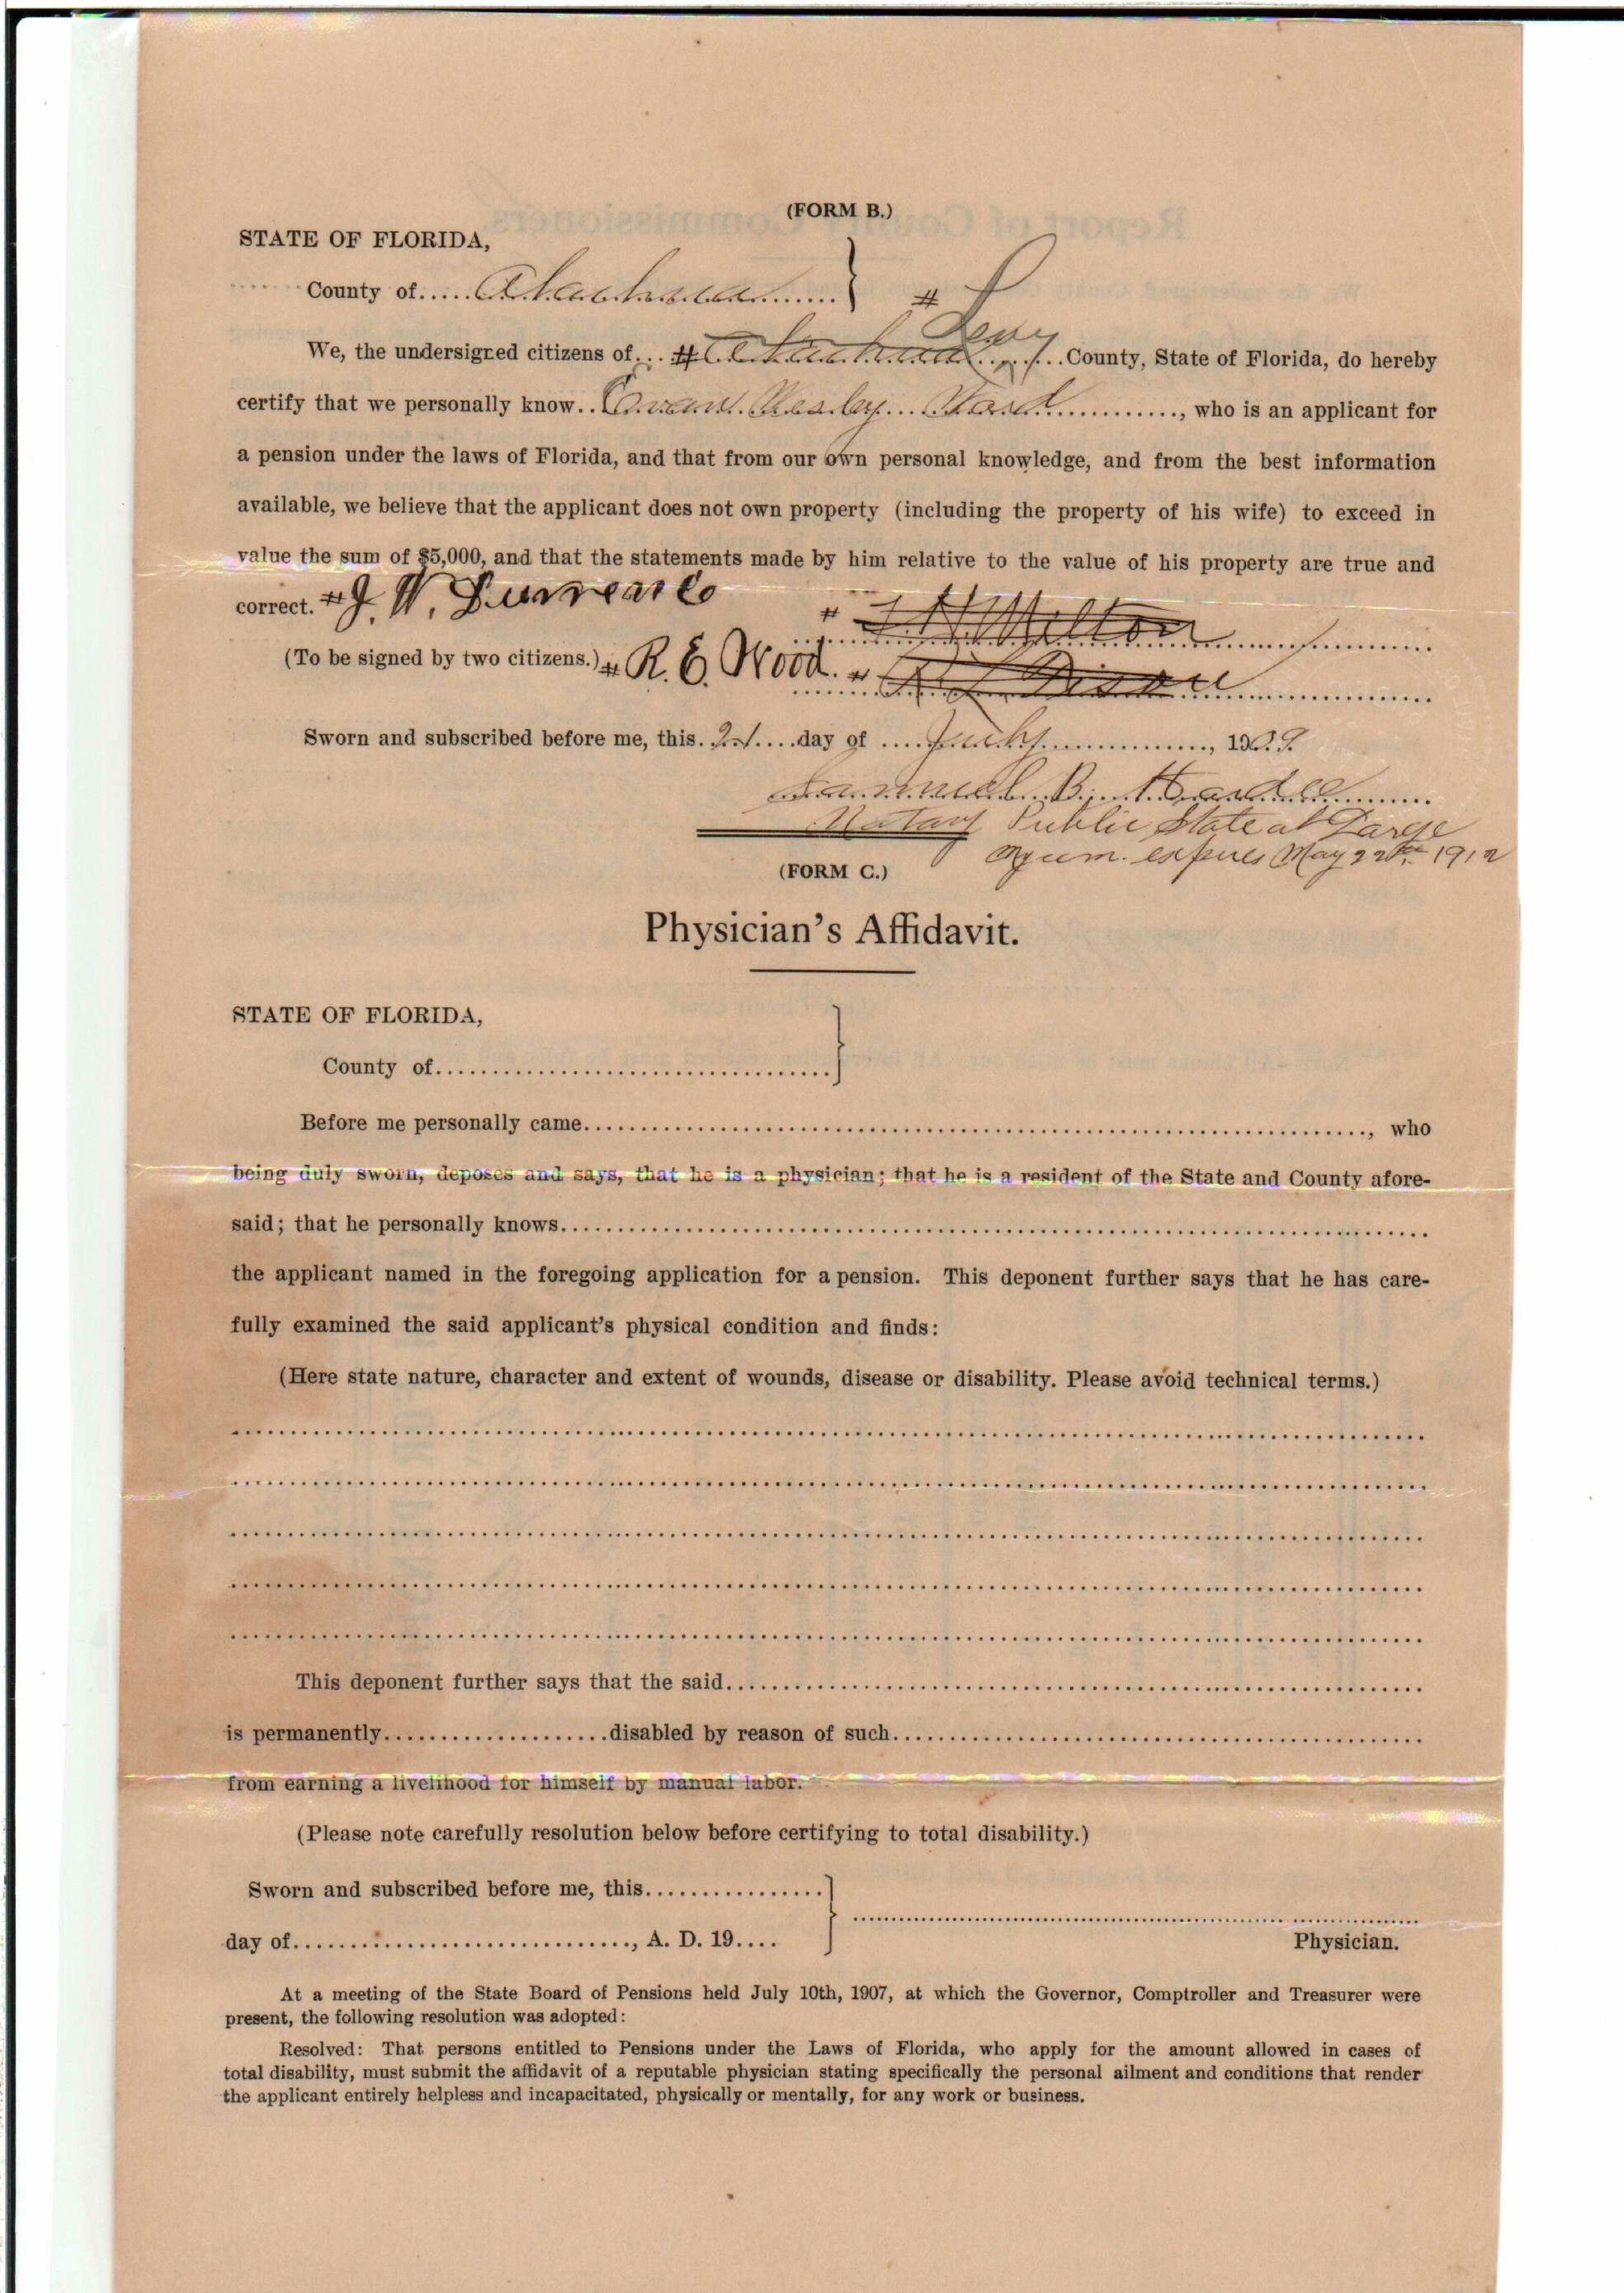 (FORM B.)
STATE OF FLORIDA,
County of..... Alachua ........
# Levy
We, the undersigned citizens of... # Alachua ..... County, State of Florida, do hereby
certify that we personally know.. Wesley ............., who is an applicant for
a pension under the laws of Florida, and that from our own personal knowledge, and from the best information
available, we believe that the applicant does not own property (including the property of his wife) to exceed in
value the sum of $5,000, and that the statements made by him relative to the value of his property are true and
correct. # J. W. Durrance
# Melton
(To be signed by two citizens.) # R. E. Wood. #
Sworn and subscribed before me, this. 21 ....day of .... July ................, 1909.
Samuel B. Hardee
Notary Public State at Large
expires May 22nd 1912
(FORM C.)
Physician's Affidavit.
STATE OF FLORIDA,
County of......................................
Before me personally came......................................................................, who
being duly sworn, deposes and says, that he is a physician; that he is a resident of the State and County afore-
said; that he personally knows..............................................................................
the applicant named in the foregoing application for a pension. This deponent further says that he has care-
fully examined the said applicant's physical condition and finds:
(Here state nature, character and extent of wounds, disease or disability. Please avoid technical terms.)
This deponent further says that the said..............................................................
is permanently......................disabled by reason of such...............................................
from earning a livelihood for himself by manual labor.
(Please note carefully resolution below before certifying to total disability.)
Sworn and subscribed before me, this.................
day of................................, A. D. 19....
Physician.
At a meeting of the State Board of Pensions held July 10th, 1907, at which the Governor, Comptroller and Treasurer were
present, the following resolution was adopted:
Resolved: That persons entitled to Pensions under the Laws of Florida, who apply for the amount allowed in cases of
total disability, must submit the affidavit of a reputable physician stating specifically the personal ailment and conditions that render
the applicant entirely helpless and incapacitated, physically or mentally, for any work or business.